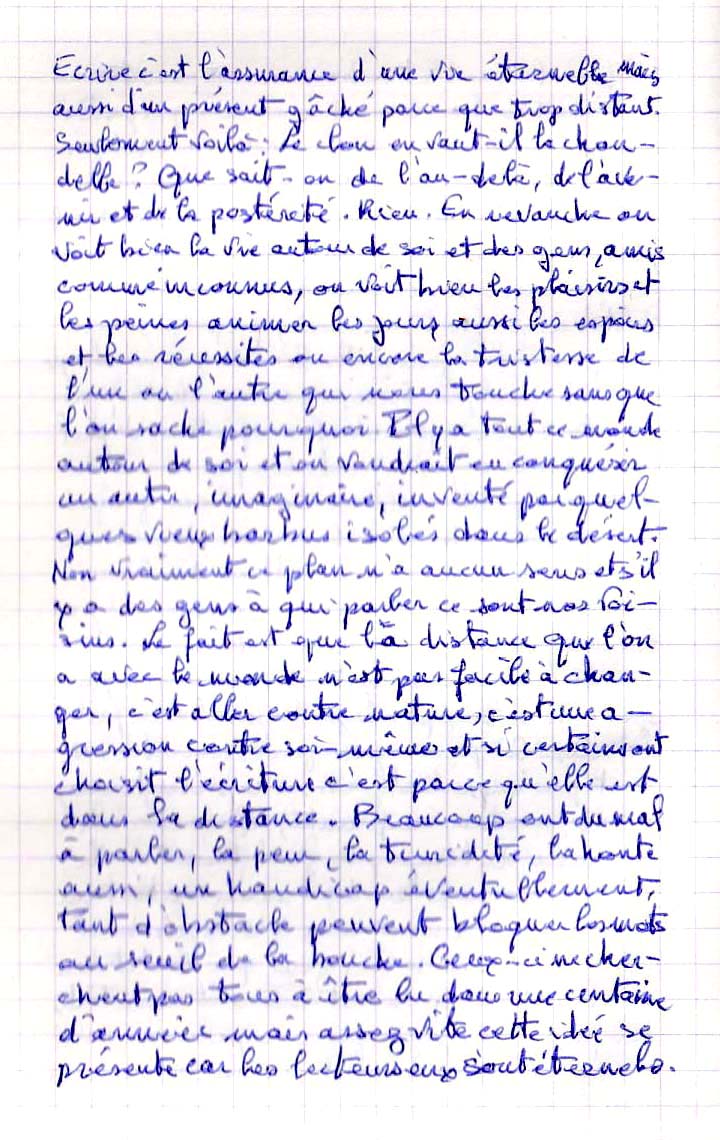 Ecrire c'est l'assurance d'une vie éternelle mais
aussi d'un présent gâché parce que trop distant.
Seulement voilà : Le chou en vaut-il la chan-
delle ? Que sait-on de l'au-delà, de l'ave-
nir et de la postéreté. Rien. En revanche on
voit bien la vie autour de soi et des gens, amis
comme inconnus, on voit bien les plaisirs et
les peines animer les jours aussi les espoirs
et les nécessités ou encore la tristesse de
l'un ou l'autre qui nous touche sans que
l'on sache pourquoi Il y a tout ce monde
autour de soi et on voudrait en conquérir
un autre, imaginaire, inventé par quel-
ques vieux barbus isolés dans le désert.
Non vraiment ce plan n'a aucun sens et s'il
y a des gens à qui parler ce sont nos voi-
sins. Le fait est que la distance que l'on
a avec le monde n'est pas facile à chan-
ger, c'est aller contre nature, c'est une a-
gression contre soi-même et si certains ont
choisit l'écriture c'est parce qu'elle est
dans la distance. Beaucoup ont du mal
à parler, la peur, la timidité, la honte
aussi, un handicap éventuellement,
tant d'obstacle peuvent bloquer les mots
au seuil de la bouche. Ceux-ci ne cher-
chent pas tous à être lu dans une centaine
d'année mais assez vite cette idée se
présente car les lecteurs eux sont éternels.